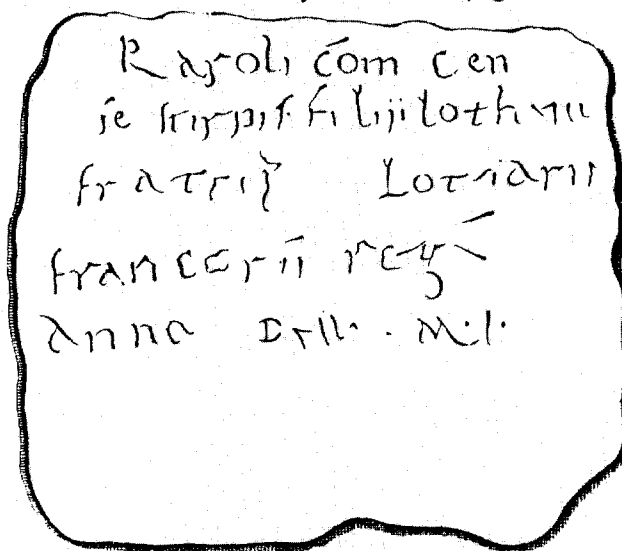 Karoli cōm cen
ie stirpis filiji loth
fratris Lotharii
francorū regī
anna Dnī. . M.I.